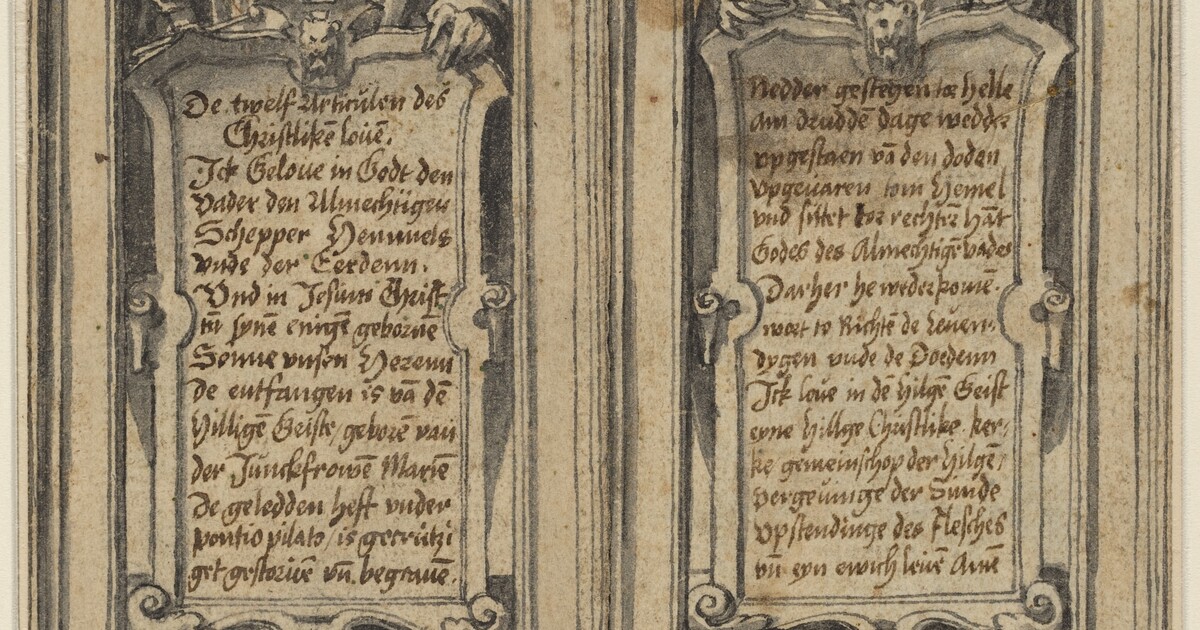 De twelf Articulen des
Christlikē louē.
Ick Geloue in Godt den
Vader den Almechtigen
Schepper Hemmels
vnde der Eerdenn.
Vnd in Jesum Christ
ūm synē enigē gebornē
Sonne vnsen Herenn
de entfangen is vā dē
Hilligē Geiste/ geborē vān
der Junckfrowē Mariē
De geledden heft vnder
pontio pilato/ is gecrützi
get gestoruē vn̄. begrauē.
Nedder gestegen toe helle
am drüddē dage wedder
vpgestaen vā den doden
vpgeuaren tom Hemel
vnd sittet tor rechtē hāt
Godes des Almechtigē vader
Darher he wederkomē.
wert to Richtē de leuen.
dygen vnde de Doedenn
Ick loue in dē hilgē Geist
eyne hillge Christlike. ker/
ke gemeinschop der hilgē/
vergeuinge der Sunde
vpstendinge des Flesches
vn̄ eyn ewich leuē Amē